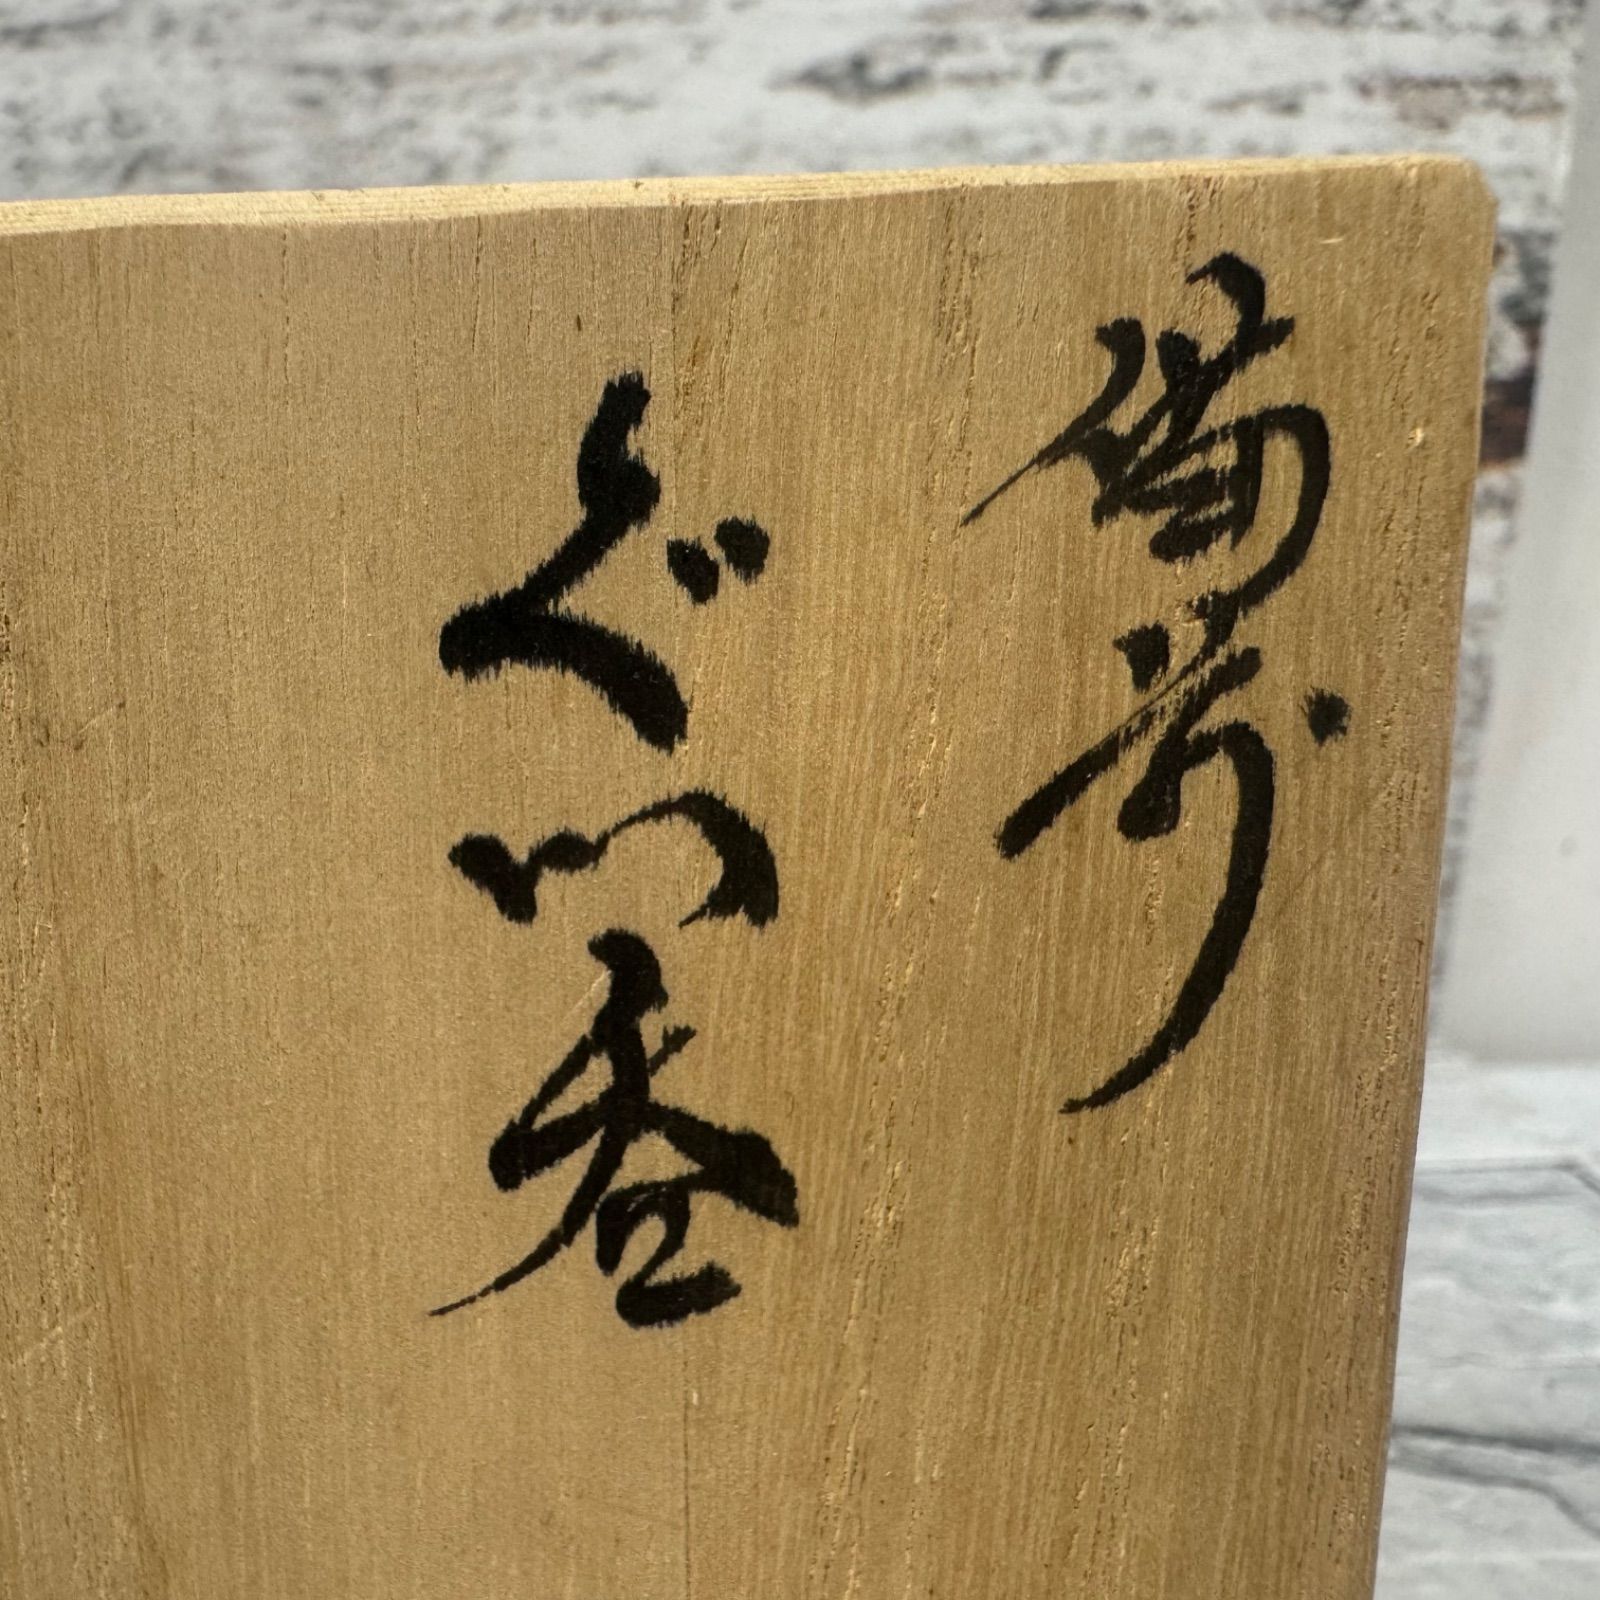 備前
ぐい呑